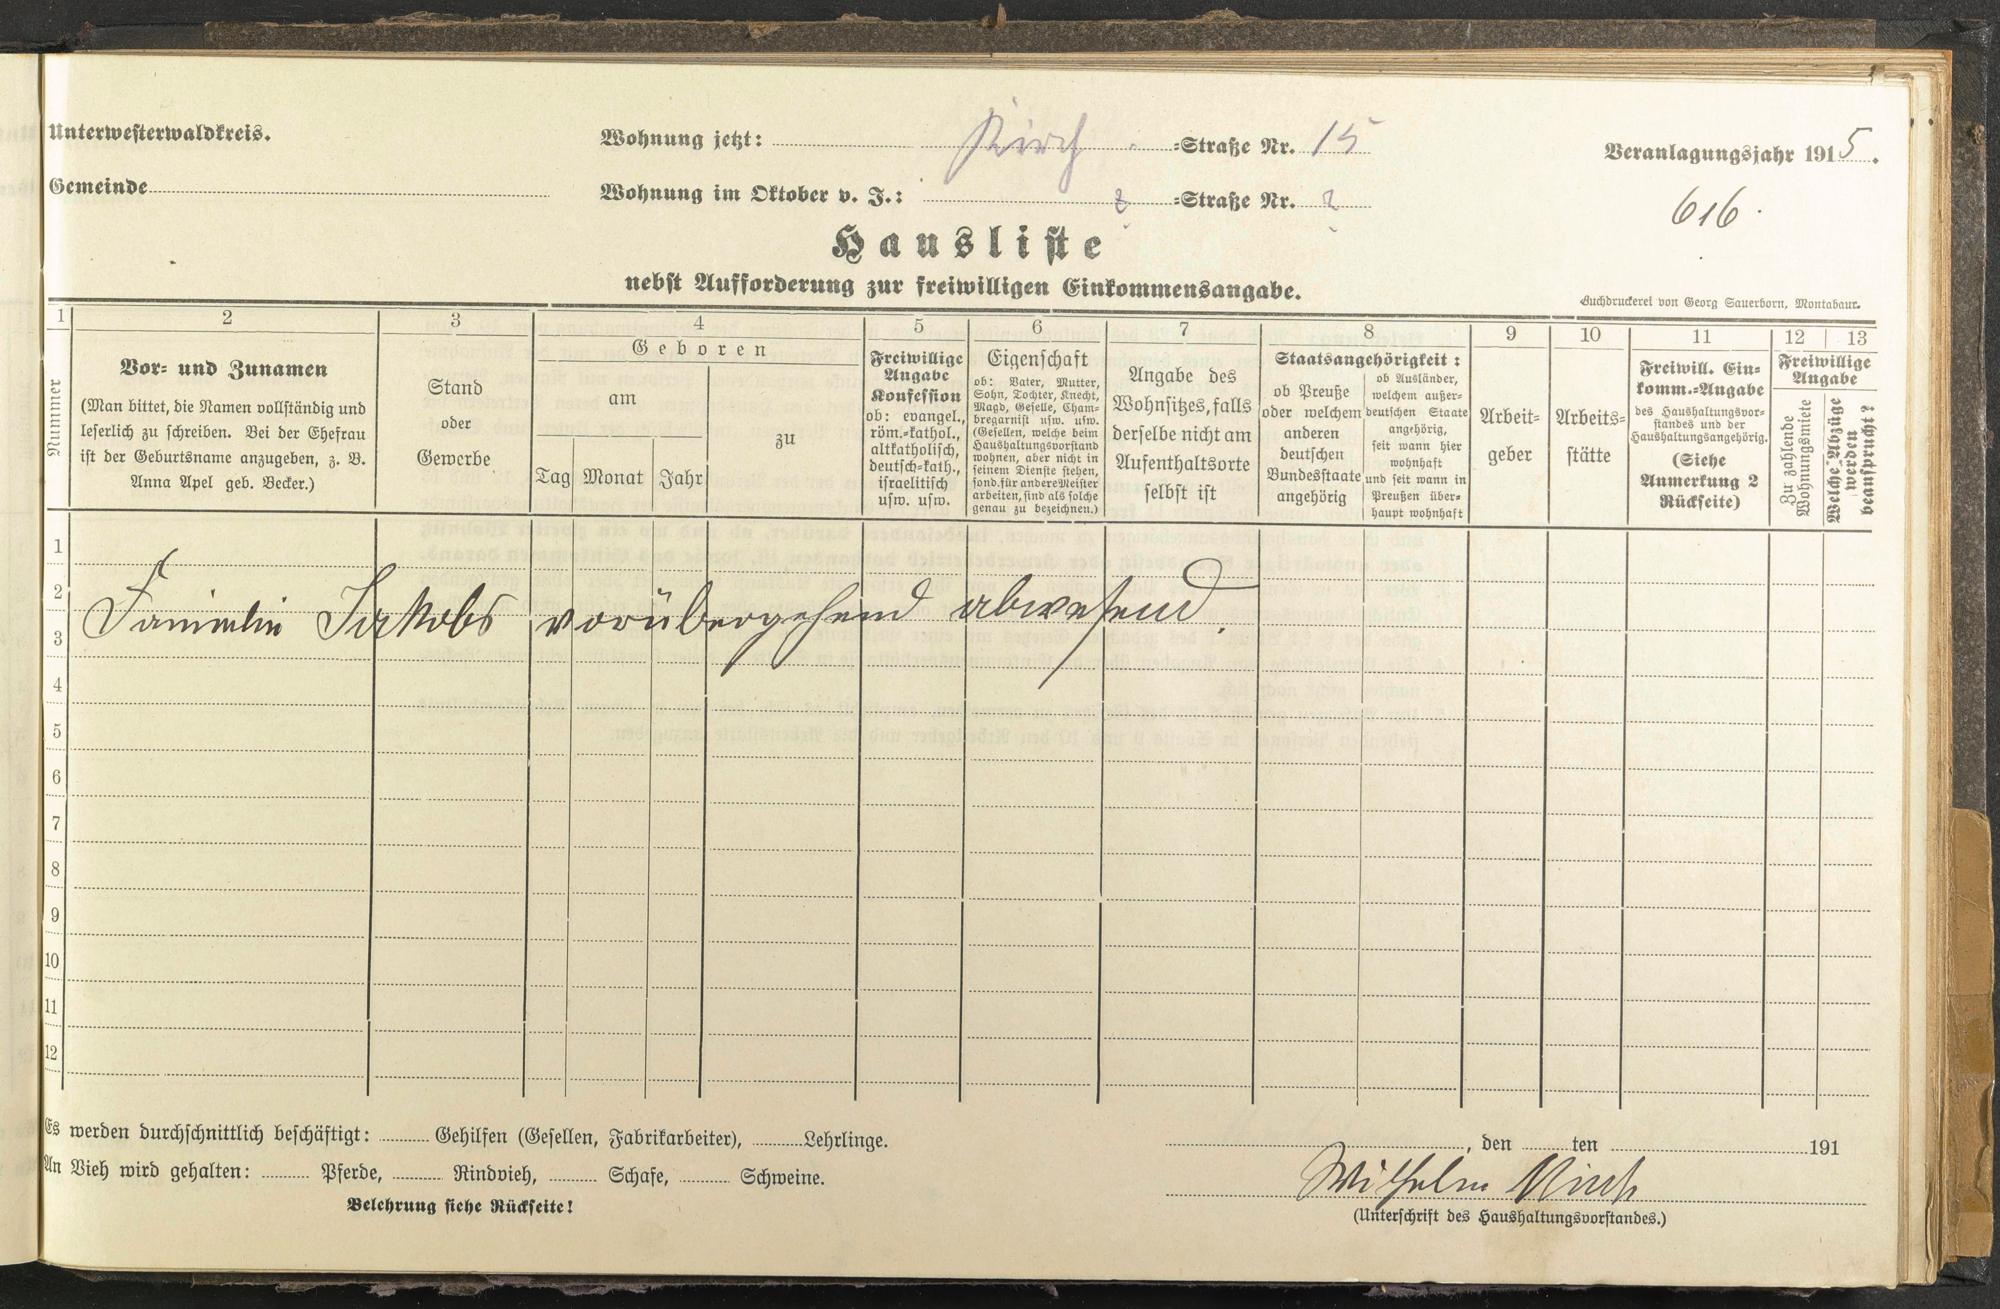 Unterwesterwaldkreis.
Gemeinde
Wohnung jetzt: Kirch-Straße Nr. 15
Wohnung im Oktober v. J.: -Straße Nr.
Veranlagungsjahr 1915.
616
Hausliste
nebst Aufforderung zur freiwilligen Einkommensangabe.
Buchdruckerei von Georg Sauerborn, Montabaur.
1 2 3 4 5 6 7 8 9 10 11 12 13
Nummer
Vor- und Zunamen
(Man bittet, die Namen vollständig und
leserlich zu schreiben. Bei der Ehefrau
ist der Geburtsname anzugeben, z. B.
Anna Apel geb. Becker.)
Stand
oder
Gewerbe
Geboren
am
Tag Monat Jahr
zu
Freiwillige
Angabe
Konfession
ob: evangel.,
röm.-kathol.,
altkatholisch,
deutsch-kath.,
israelitisch
usw. usw.
Eigenschaft
ob: Vater, Mutter,
Sohn, Tochter, Knecht,
Magd, Geselle, Cham-
bregarnist usw. usw.
(Gesellen, welche beim
Haushaltungsvorstand
wohnen, aber nicht in
seinem Dienste stehen,
sond. für andere Meister
arbeiten, sind als solche
genau zu bezeichnen.)
Angabe des
Wohnsitzes, falls
derselbe nicht am
Aufenthaltsorte
selbst ist
Staatsangehörigkeit:
ob Preuße
oder welchem
anderen
deutschen
Bundesstaate
angehörig
ob Ausländer,
welchem außer-
deutschen Staate
angehörig,
seit wann hier
wohnhaft
und seit wann in
Preußen über-
haupt wohnhaft
Arbeit-
geber
Arbeits-
stätte
Freiwill. Ein-
komm.-Angabe
des Haushaltungsvor-
standes und der
Haushaltungsangehörig.
(Siehe
Anmerkung 2
Rückseite)
Freiwillige
Angabe
Zu zahlende
Wohnungsmiete
Welche Abzüge
werden
beansprucht?
1
2
Familie Jakobs vorübergehend abwesend.
3
4
5
6
7
8
9
10
11
12
Es werden durchschnittlich beschäftigt: Gehilfen (Gesellen, Fabrikarbeiter), Lehrlinge.
An Vieh wird gehalten: Pferde, Rindvieh, Schafe, Schweine.
Belehrung siehe Rückseite!
, den ten 191
Wilhelm
(Unterschrift des Haushaltungsvorstandes.)